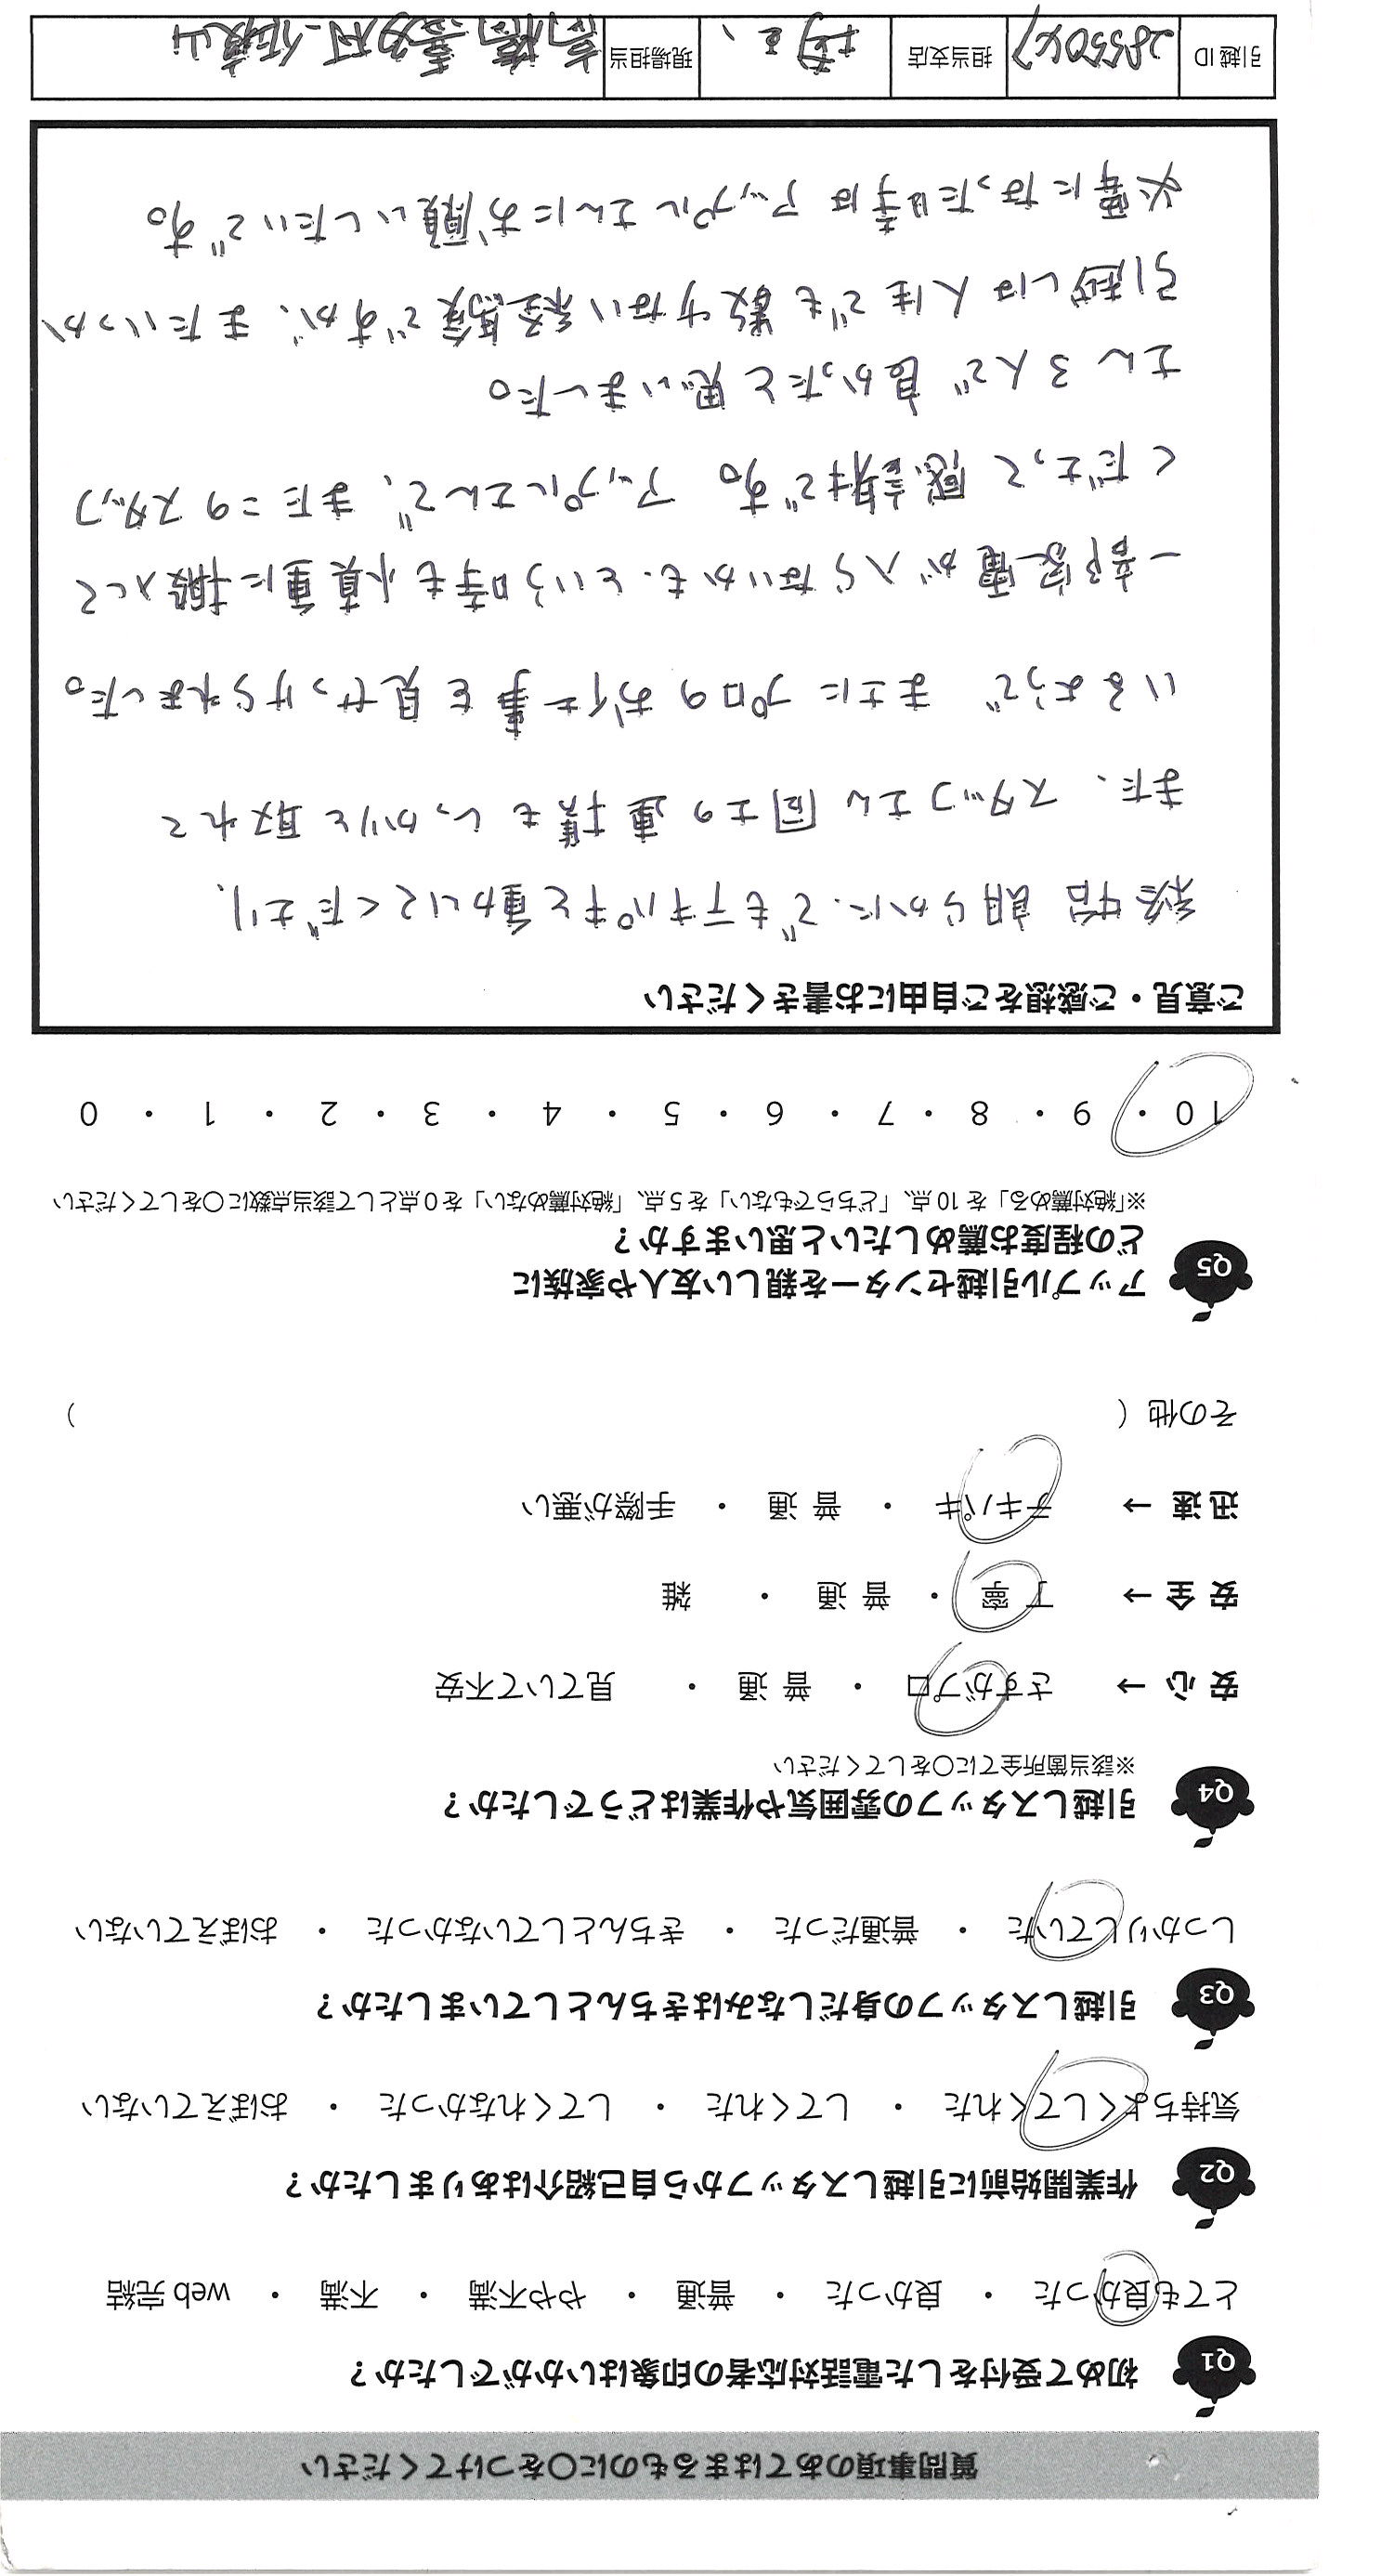 質問事項のあてはまるものに○をつけてください
Q1 初めて受付をした電話対応者の印象はいかがでしたか？
とても良かった ・ 良かった ・ 普通 ・ やや不満 ・ 不満 ・ web 完結
Q2 作業開始前に引越しスタッフから自己紹介はありましたか？
気持ちよくしてくれた ・ してくれた ・ してくれなかった ・ おぼえていない
Q3 引越しスタッフの身だしなみはきちんとしていましたか？
しっかりしていた ・ 普通だった ・ きちんとしていなかった ・ おぼえていない
Q4 引越しスタッフの雰囲気や作業はどうでしたか？
※該当箇所全てに○をしてください
安 心 → さすがプロ ・ 普 通 ・ 見ていて不安
安 全 → 丁 寧 ・ 普 通 ・ 雑
迅 速 → テキパキ ・ 普 通 ・ 手際が悪い
その他（ ）
Q5 アップル引越センターを親しい友人や家族に
どの程度お薦めしたいと思いますか？
※「絶対薦める」を 10 点、「どちらでもない」を 5 点、「絶対薦めない」を 0 点として該当点数に○をしてください
10 ・ 9 ・ 8 ・ 7 ・ 6 ・ 5 ・ 4 ・ 3 ・ 2 ・ 1 ・ 0
ご意見・ご感想をご自由にお書きください
終始 朗らかに、でもテキパキと動いてくださり、
また、スタッフさん同士の連携もしっかりと取れて
いるようで まさにプロのお仕事を見せつけられました。
一部家電が入らないかも、という時も慎重に搬入して
くださって 感謝です。アップルさんで、またこのスタッフ
さん3人で 良かったと思いました。
引越しは人生でも数少ない経験ですが、またいつか
必要になった時は アップルさんにお願いしたいです。
引越 ID 担当支店 埼玉 現場担当 高橋 喜多村 佐復山